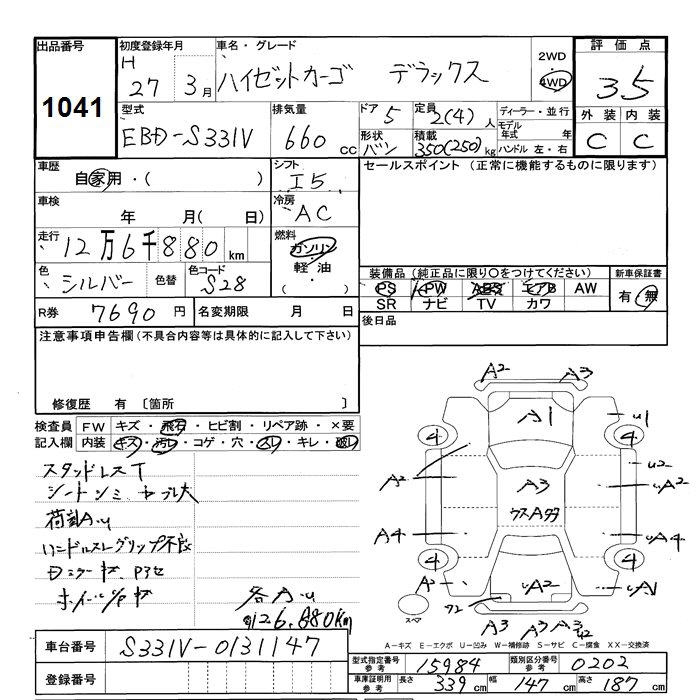 出品番号 初度登録年月 車名・グレード 2WD 評価点
1041 H 27年 3月 ハイゼットカーゴ デラックス 4WD 3.5
型式 排気量 ドア 5 定員 2(4)人 ディーラー・並行 外装 内装
EBD-S331V 660cc 形状 バン 積載 350(250)kg モデル年式 年 ハンドル 左・右 C C
車歴 自家用・( ) シフト I5 セールスポイント (正常に機能するものに限ります)
車検 年 月( 日) 冷房 AC
走行 12万6千880km 燃料 ガソリン・軽油・( )
色 シルバー 色替 色コード S28 装備品 (純正品に限り○をつけてください) 新車保証書
PS PW ABS エアB AW 有・無
SR ナビ TV カワ
R券 7690円 名変期限 月 日 後日品
注意事項申告欄 (不具合内容等は具体的に記入して下さい)
修復歴 有 〔箇所 〕
検査員 FW キズ・飛石・ヒビ割・リペア跡・×要
記入欄 内装 キズ・汚レ・コゲ・穴・スレ・キレ・破レ
スタッドレスT
各A・u
126.880km
A2 A3
A1 u1
4 4
A2 u2
A3 uA2
ウスA多
A4 uA4
4 4
A2 uA2 uA1
スペア
A3 A3 A3
A-キズ E-エクボ U-凹み W-補修跡 S-サビ C-腐食 XX-交換済
車台番号 S331V-0131147
登録番号
型式指定番号 参考 15984 類別区分番号 参考 0202
車庫証明用 参考 長さ 339cm 幅 147cm 高さ 187cm